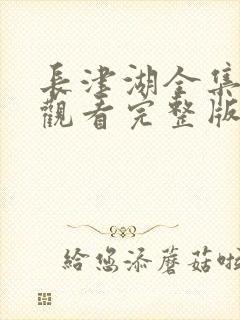 長津湖全集
觀看完整版
給您添蘑菇啦